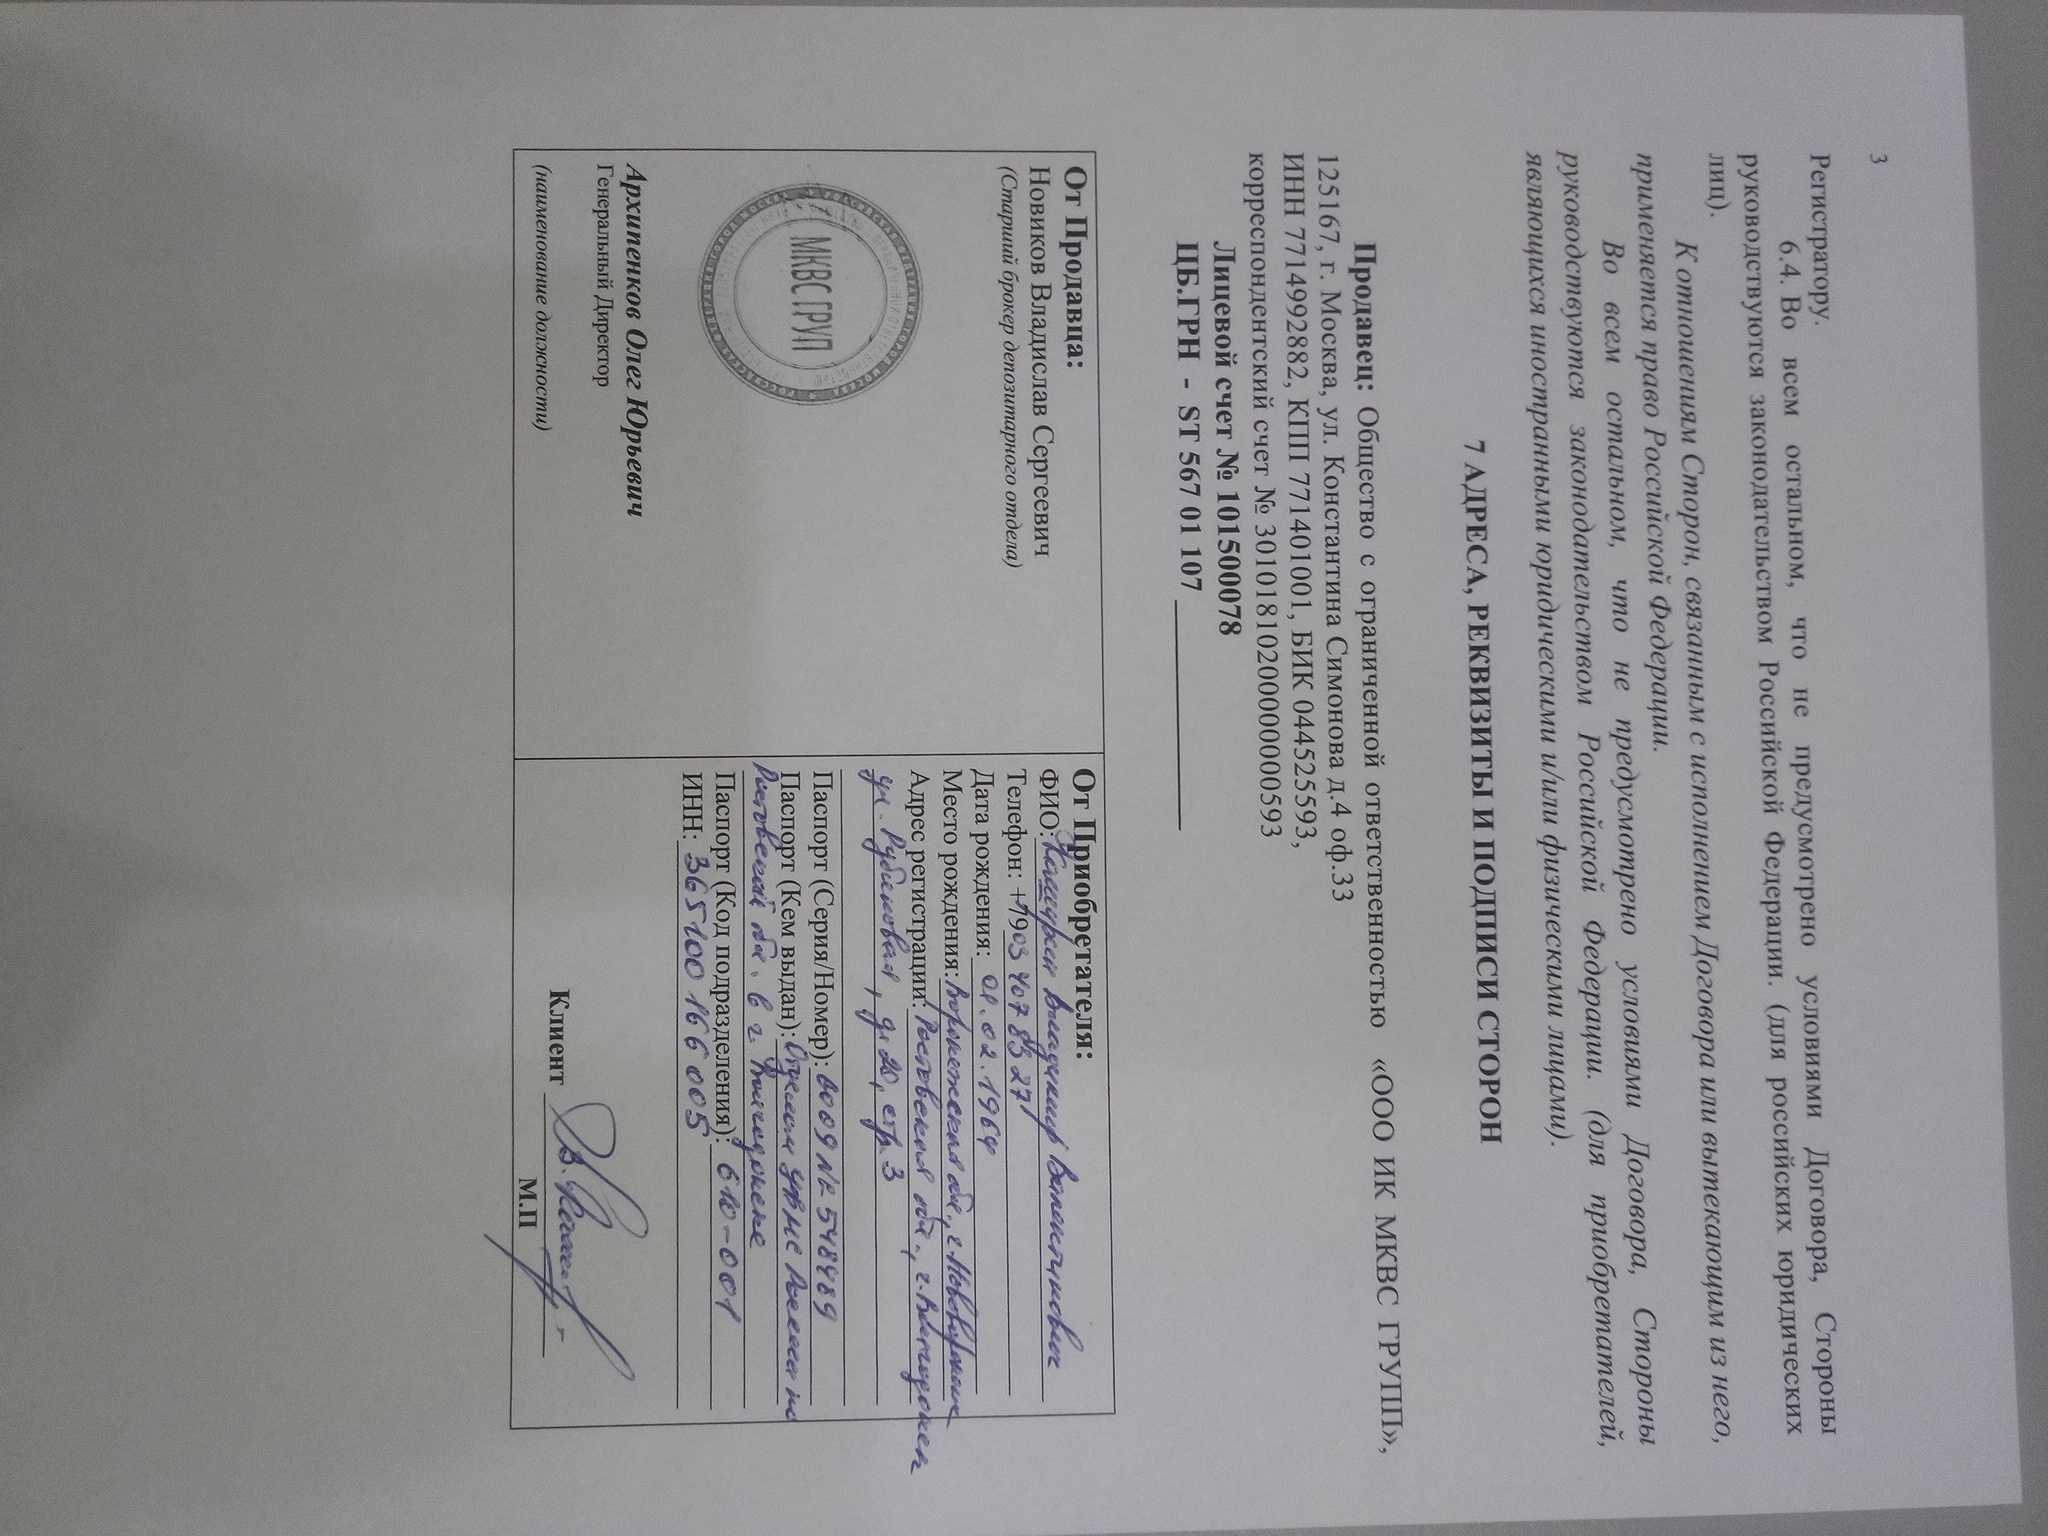 3
Регистратору.
6.4. Во всем остальном, что не предусмотрено условиями Договора, Стороны
руководствуются законодательством Российской Федерации. (для российских юридических
лиц).
К отношениям Сторон, связанным с исполнением Договора или вытекающим из него,
применяется право Российской Федерации.
Во всем остальном, что не предусмотрено условиями Договора, Стороны
руководствуются законодательством Российской Федерации. (для приобретателей,
являющихся иностранными юридическими и/или физическими лицами).
7 АДРЕСА, РЕКВИЗИТЫ И ПОДПИСИ СТОРОН
Продавец: Общество с ограниченной ответственностью «ООО ИК МКВС ГРУПП»,
125167, г. Москва, ул. Константина Симонова д.4 оф.33
ИНН 7714992882, КПП 771401001, БИК 044525593,
корреспондентский счет № 30101810200000000593
Лицевой счет № 101500078
ЦБ.ГРН - ST 567 01 107
От Продавца:
Новиков Владислав Сергеевич
(Старший брокер депозитарного отдела)
МКВС ГРУП
Архипенков Олег Юрьевич
Генеральный Директор
(наименование должности)
От Приобретателя:
ФИО: Владимир Валентинович
Телефон: +7903 407 83 27
Дата рождения: 02.1964
Место рождения: Воронежская обл., г.
Адрес регистрации: Ростовская обл., г. Волгодонск
ул. Рубиновая, д. 20, стр. 3
Паспорт (Серия/Номер): 6009 № 548489
Паспорт (Кем выдан): Отделом УФМС России по
Ростовской обл. в г. Волгодонске
Паспорт (Код подразделения): 610-001
ИНН: 365100166005
Клиент
М.П